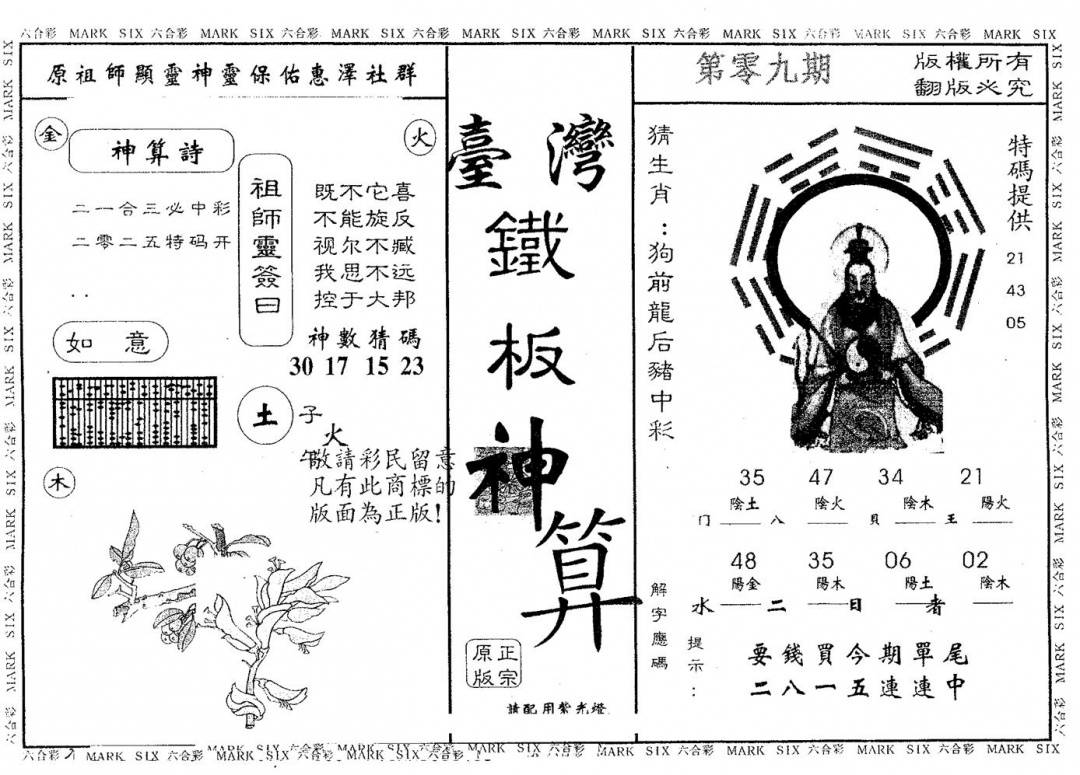 六合彩 MARK SIX 六合彩 MARK SIX 六合彩 MARK SIX 六合彩 MARK SIX 六合彩 MARK SIX 六合彩 MARK SIX 六合彩 MARK SIX 六合彩 MARK SIX
原祖師顯靈神靈保佑惠澤社群
金
火
神算詩
二一合三必中彩
二零二五特码开
..
如 意
祖師靈簽曰
既不它喜
不能旋反
视尔不臧
我思不远
控于大邦
神數猜碼
30 17 15 23
土
子
火
午
敬請彩民留意
凡有此商標的
版面為正版!
木
臺灣
鐵板神算
正宗
原版
請配用紫光燈
第零九期
版權所有
翻版必究
猜生肖:狗前龍后豬中彩
特碼提供
21
43
05
35 47 34 21
陰土 陰火 陰木 陽火
门 八 貝 王
48 35 06 02
陽金 陽木 陽土 陰木
水 二 日 者
解字應碼
提示:
要錢買今期單尾
二八一五連連中
六合彩 MARK SIX 六合彩 MARK SIX 六合彩 MARK SIX 六合彩 MARK SIX 六合彩 MARK SIX 六合彩 MARK SIX 六合彩 MARK SIX